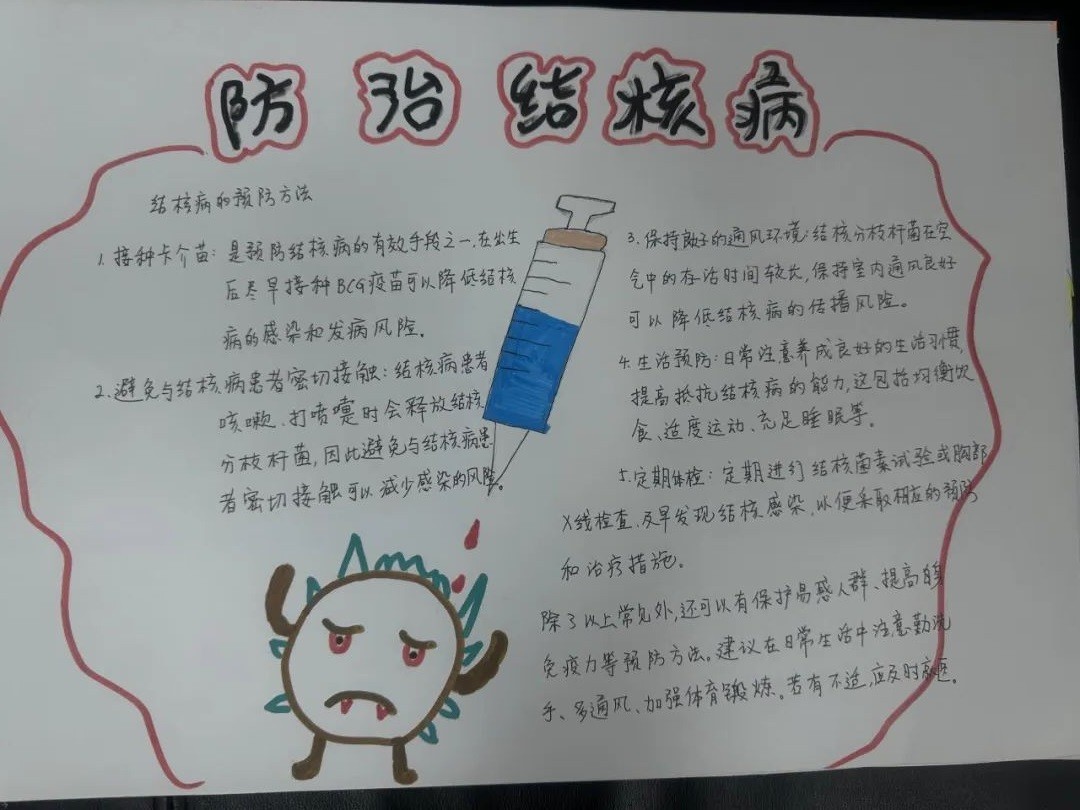 防治结核病
结核病的预防方法
1. 接种卡介苗：是预防结核病的有效手段之一，在出生
后尽早接种BCG疫苗可以降低结核
病的感染和发病风险。
2. 避免与结核病患者密切接触：结核病患者
咳嗽、打喷嚏时会释放结核
分枝杆菌，因此避免与结核病患
者密切接触可以减少感染的风险。
3. 保持良好的通风环境：结核分枝杆菌在空
气中的存活时间较长，保持室内通风良好
可以降低结核病的传播风险。
4. 生活预防：日常注意养成良好的生活习惯，
提高抵抗结核病的能力，这包括均衡饮
食、适度运动、充足睡眠等。
5. 定期体检：定期进行结核菌素试验或胸部
X线检查，及早发现结核感染，以便采取相应的预防
和治疗措施。
除了以上常见外，还可以有保护易感人群、提高自身
免疫力等预防方法。建议在日常生活中注意勤洗
手、多通风、加强体育锻炼。若有不适，应及时就医。